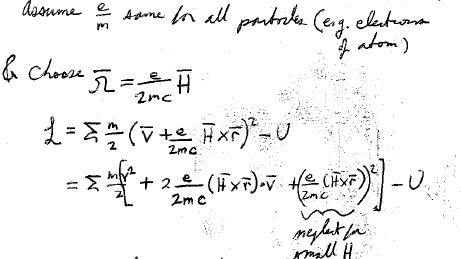 Assume e/m same for all particles (e.g. electrons
of atom)
& choose Ω̄ = e/2mc H̄
L = Σ m/2 (v̄ + e/2mc H̄×r̄)² − U
= Σ m/2 [v² + 2 e/2mc (H̄×r̄)·v̄ + (e/2mc (H̄×r̄))²] − U
neglect for
small H